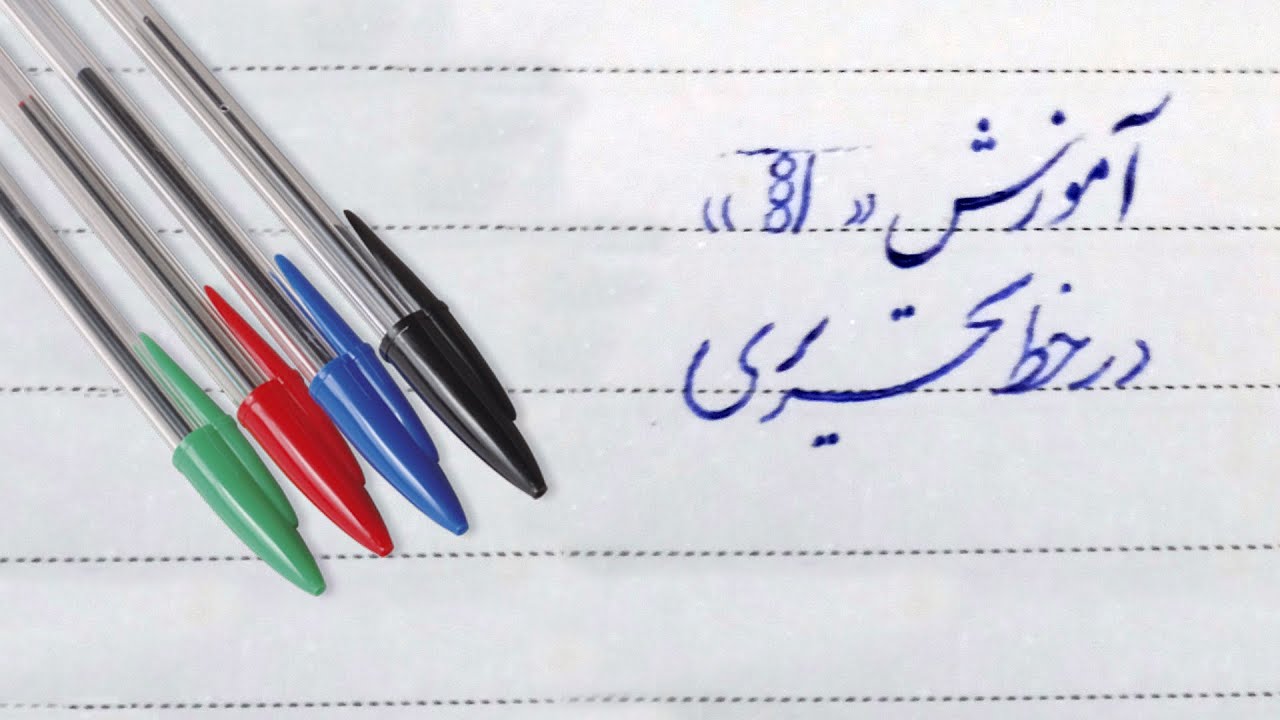 آموزش « ا »
در خط تحریری